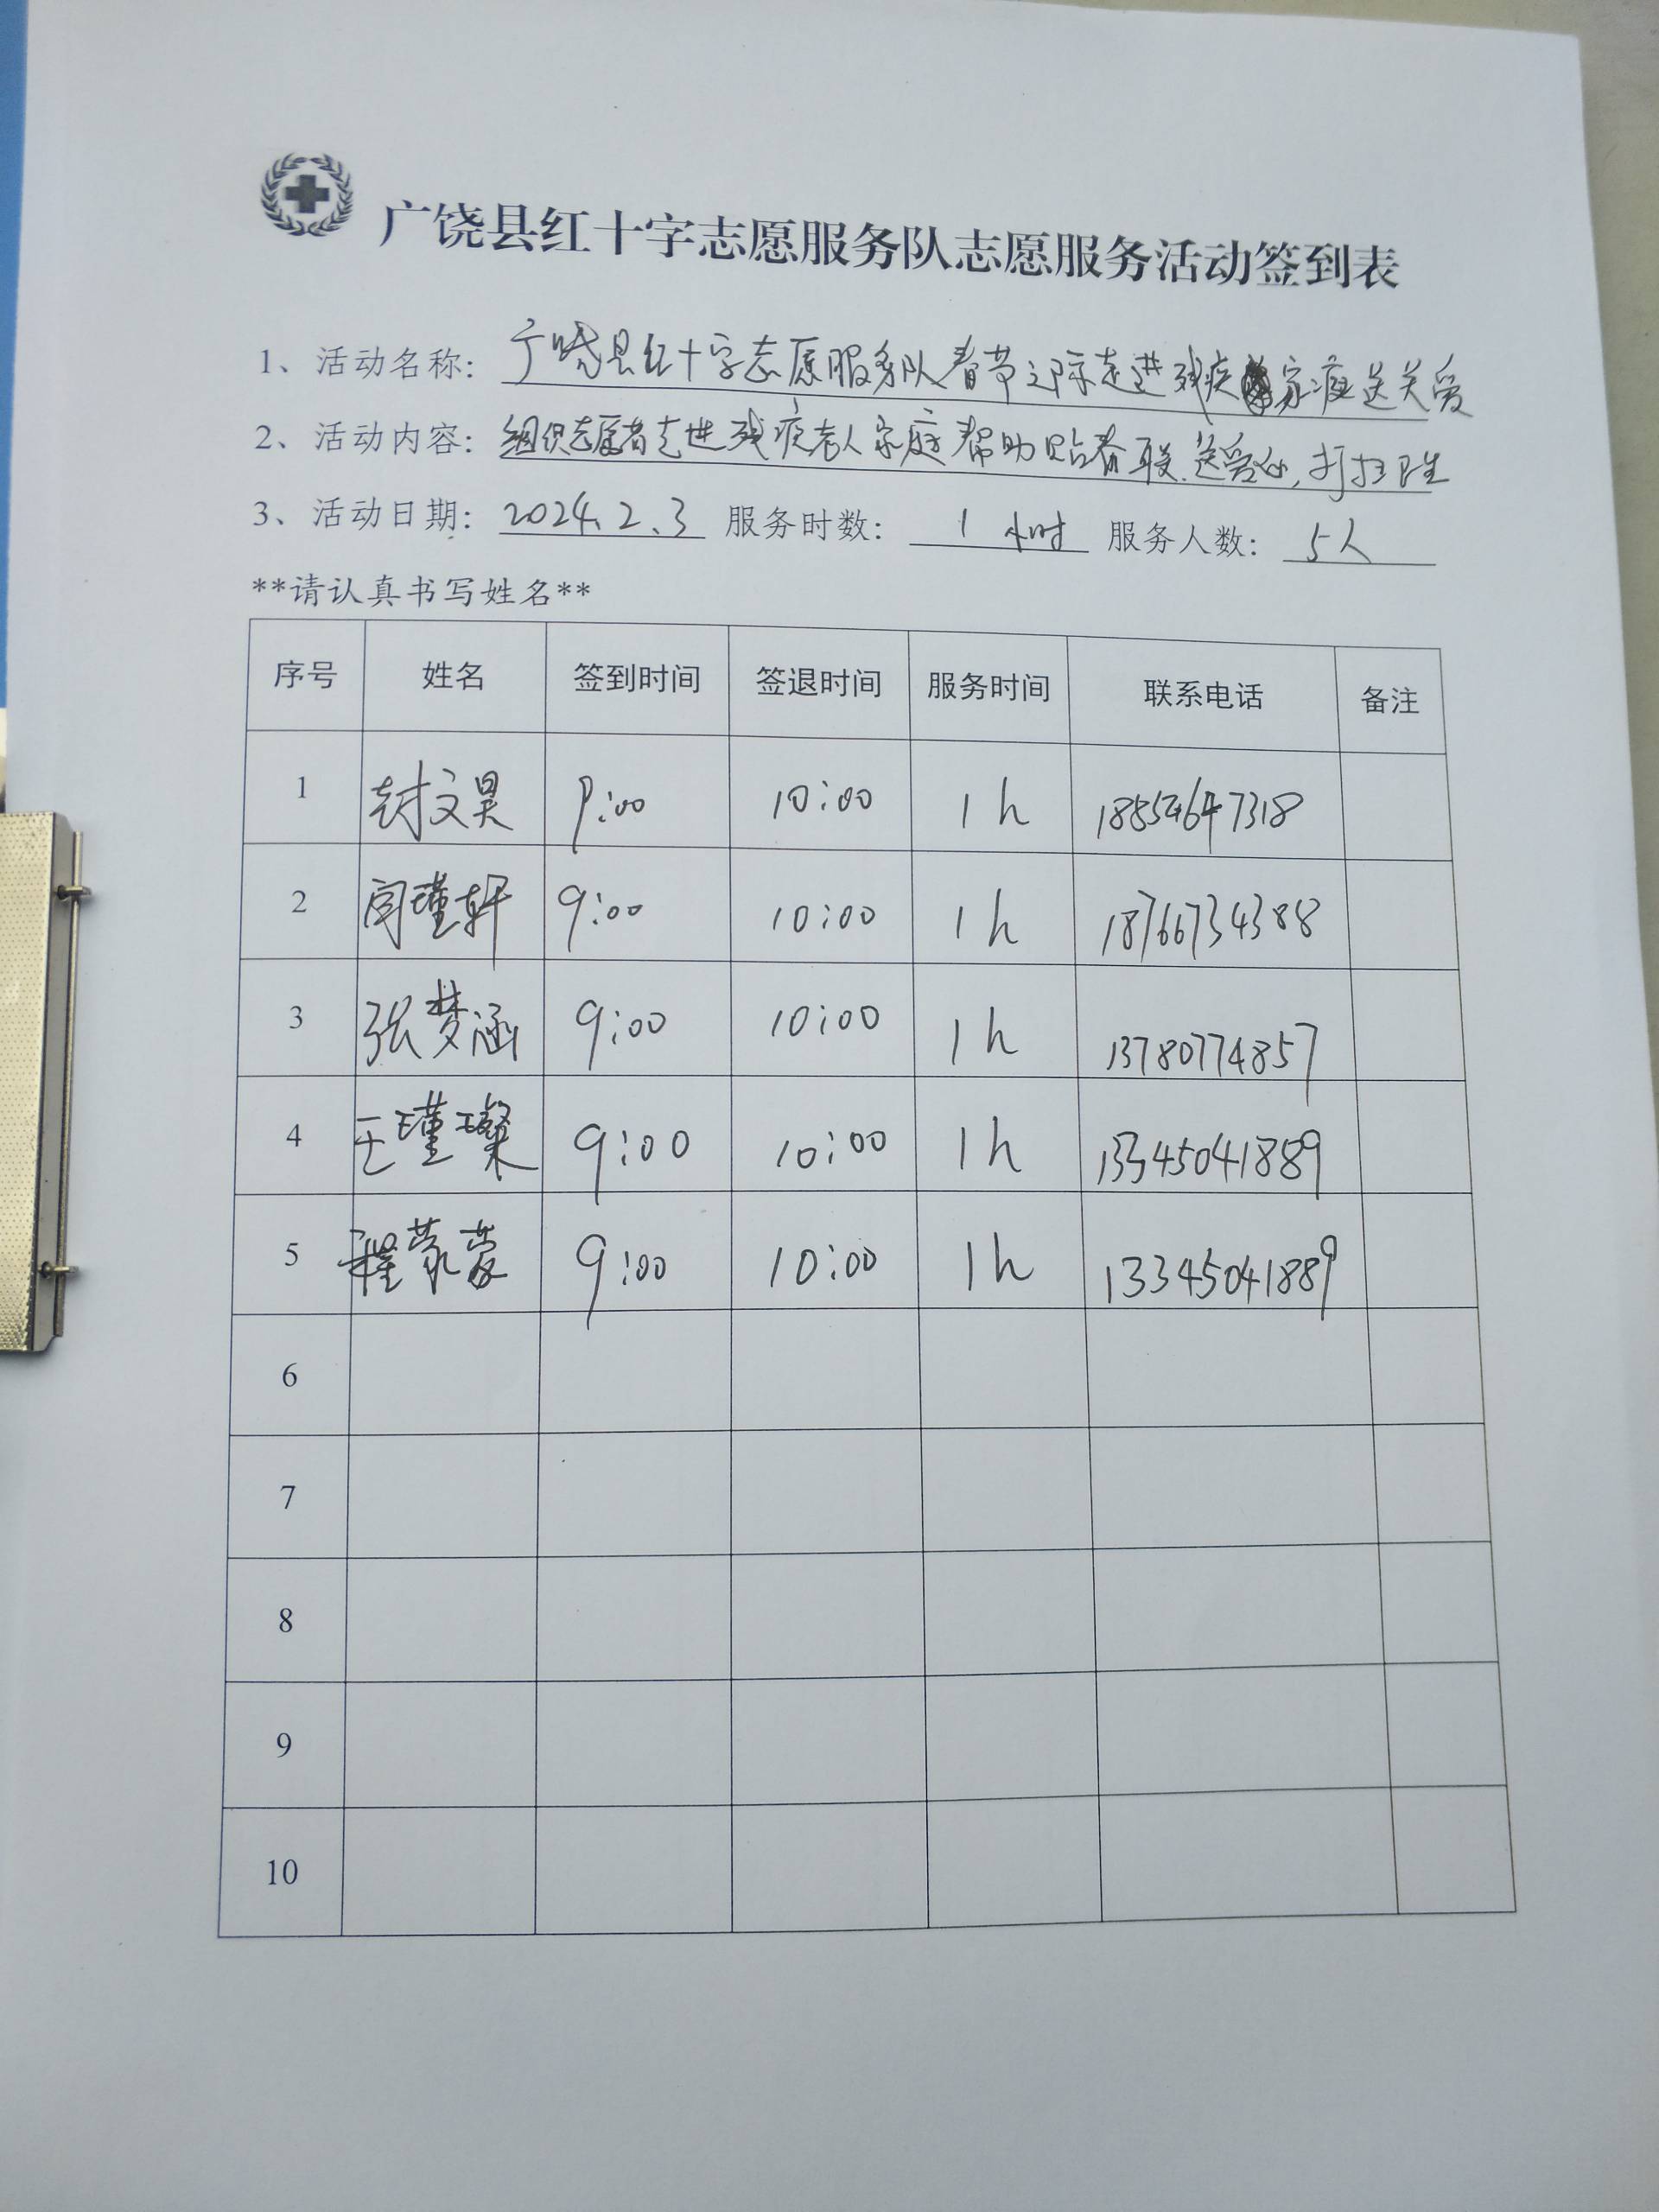 广饶县红十字志愿服务队志愿服务活动签到表
1、活动名称: 广饶县红十字志愿服务队春节之际走进残疾家庭送关爱
2、活动内容: 组织志愿者走进残疾老人家庭帮助贴春联、送爱心,打扫卫生
3、活动日期: 2024.2.3 服务时数: 1小时 服务人数: 5人
**请认真书写姓名**
序号 姓名 签到时间 签退时间 服务时间 联系电话 备注
1 封文昊 9:00 10:00 1h
2 闫瑾轩 9:00 10:00 1h 18766734388
3 张梦涵 9:00 10:00 1h 13780774857
4 王瑾璨 9:00 10:00 1h 13345041889
5 程蒙蒙 9:00 10:00 1h 13345041889
6
7
8
9
10